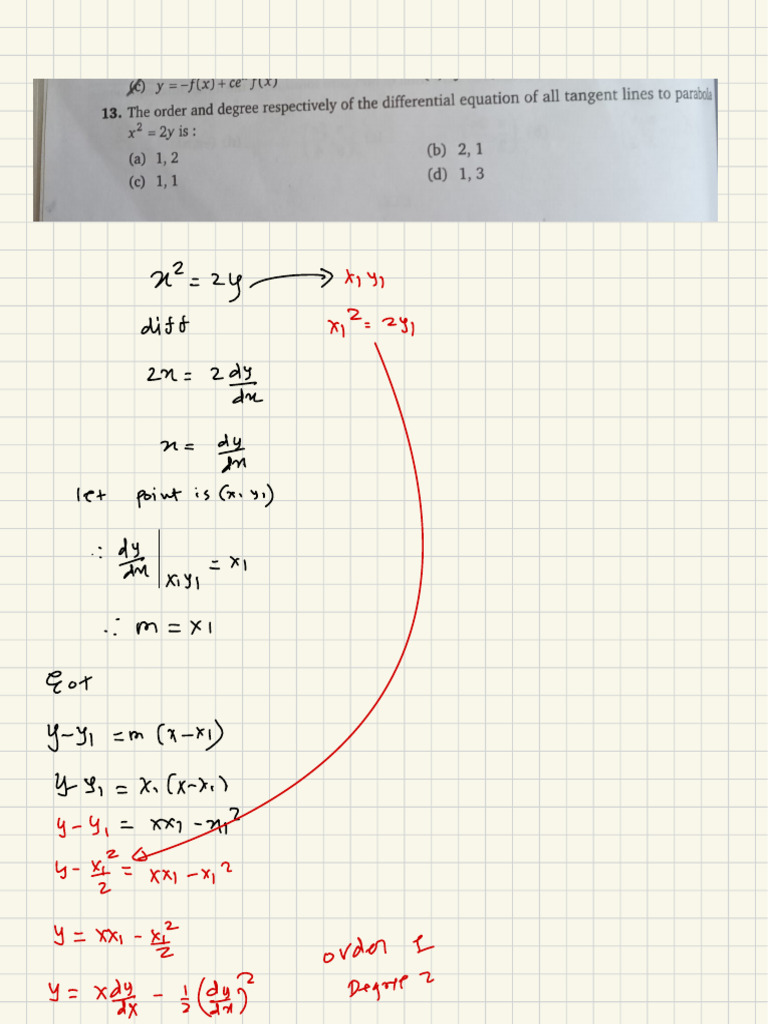 (c) y = -f(x) + ce⁻ f(x)
13. The order and degree respectively of the differential equation of all tangent lines to parabola
x² = 2y is :
(a) 1, 2 (b) 2, 1
(c) 1, 1 (d) 1, 3
x² = 2y → x₁ y₁
diff x₁² = 2y₁
2x = 2 dy/dx
x = dy/dx
let point is (x₁ y₁)
∴ dy/dx | x₁y₁ = x₁
∴ m = x₁
Eot
y-y₁ = m (x-x₁)
y-y₁ = x₁ (x-x₁)
y-y₁ = xx₁ - x₁²
y - x₁²/2 = xx₁ - x₁²
y = xx₁ - x₁²/2
order 1
y = x dy/dx - 1/2 (dy/dx)²
Degree 2